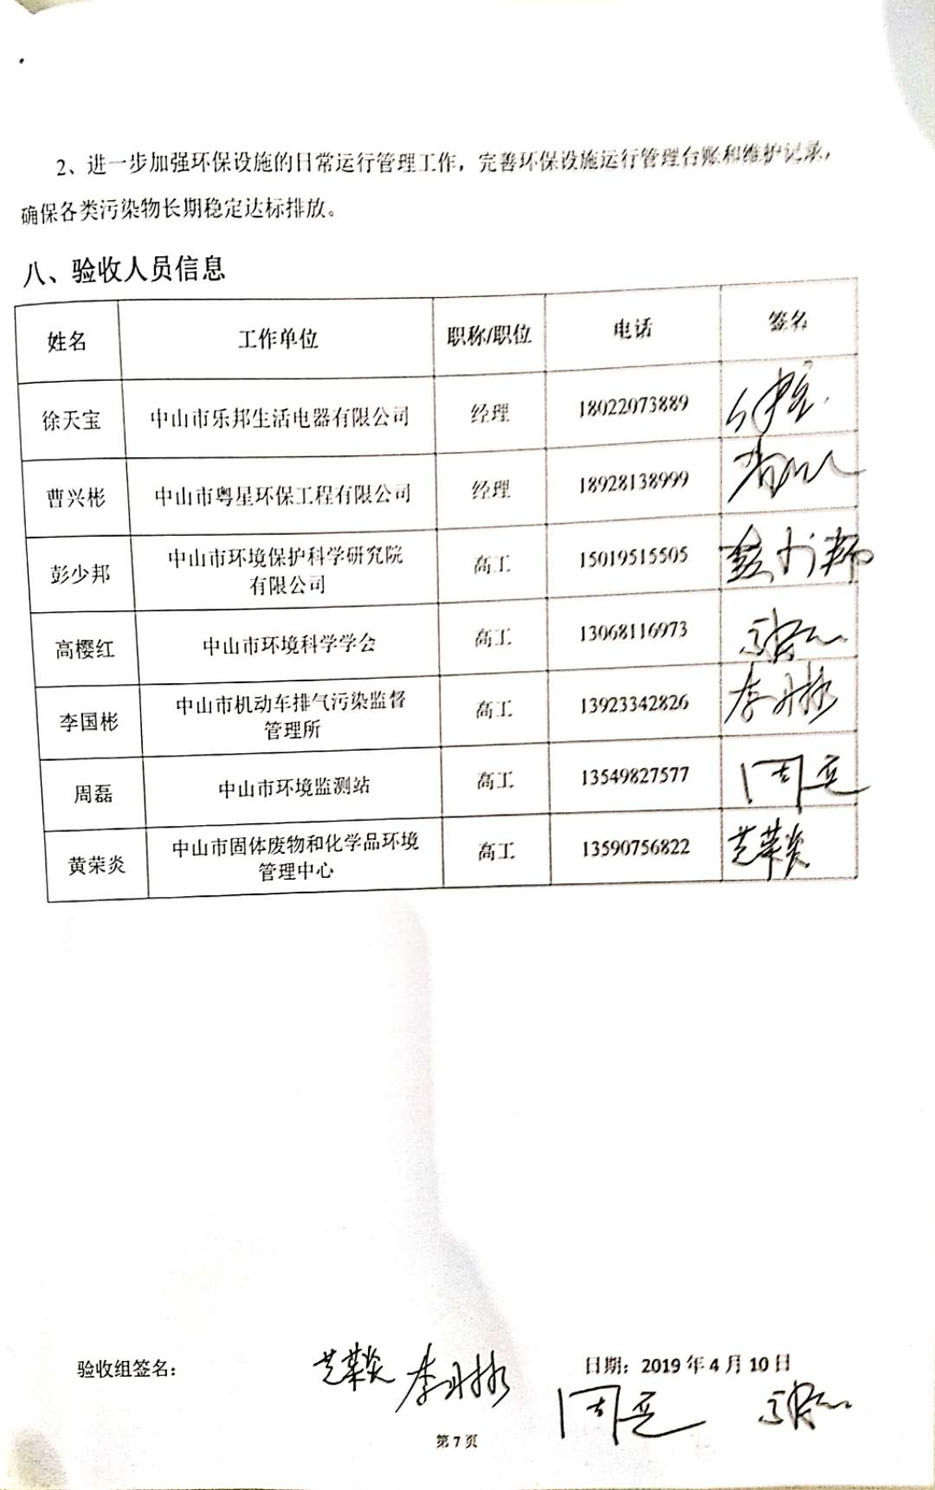 2、进一步加强环保设施的日常运行管理工作，完善环保设施运行管理台账和维护记录，
确保各类污染物长期稳定达标排放。
八、验收人员信息
姓名 工作单位 职称/职位 电话 签名
徐天宝 中山市乐邦生活电器有限公司 经理 18022073889
曹兴彬 中山市粤星环保工程有限公司 经理 18928138999
彭少邦 中山市环境保护科学研究院
有限公司 高工 15019515505 彭少邦
高樱红 中山市环境科学学会 高工 13068116973
李国彬 中山市机动车排气污染监督
管理所 高工 13923342826 李国彬
周磊 中山市环境监测站 高工 13549827577 周磊
黄荣炎 中山市固体废物和化学品环境
管理中心 高工 13590756822 黄荣炎
验收组签名： 黄荣炎 李国彬 日期：2019 年 4 月 10 日
周磊
第 7 页